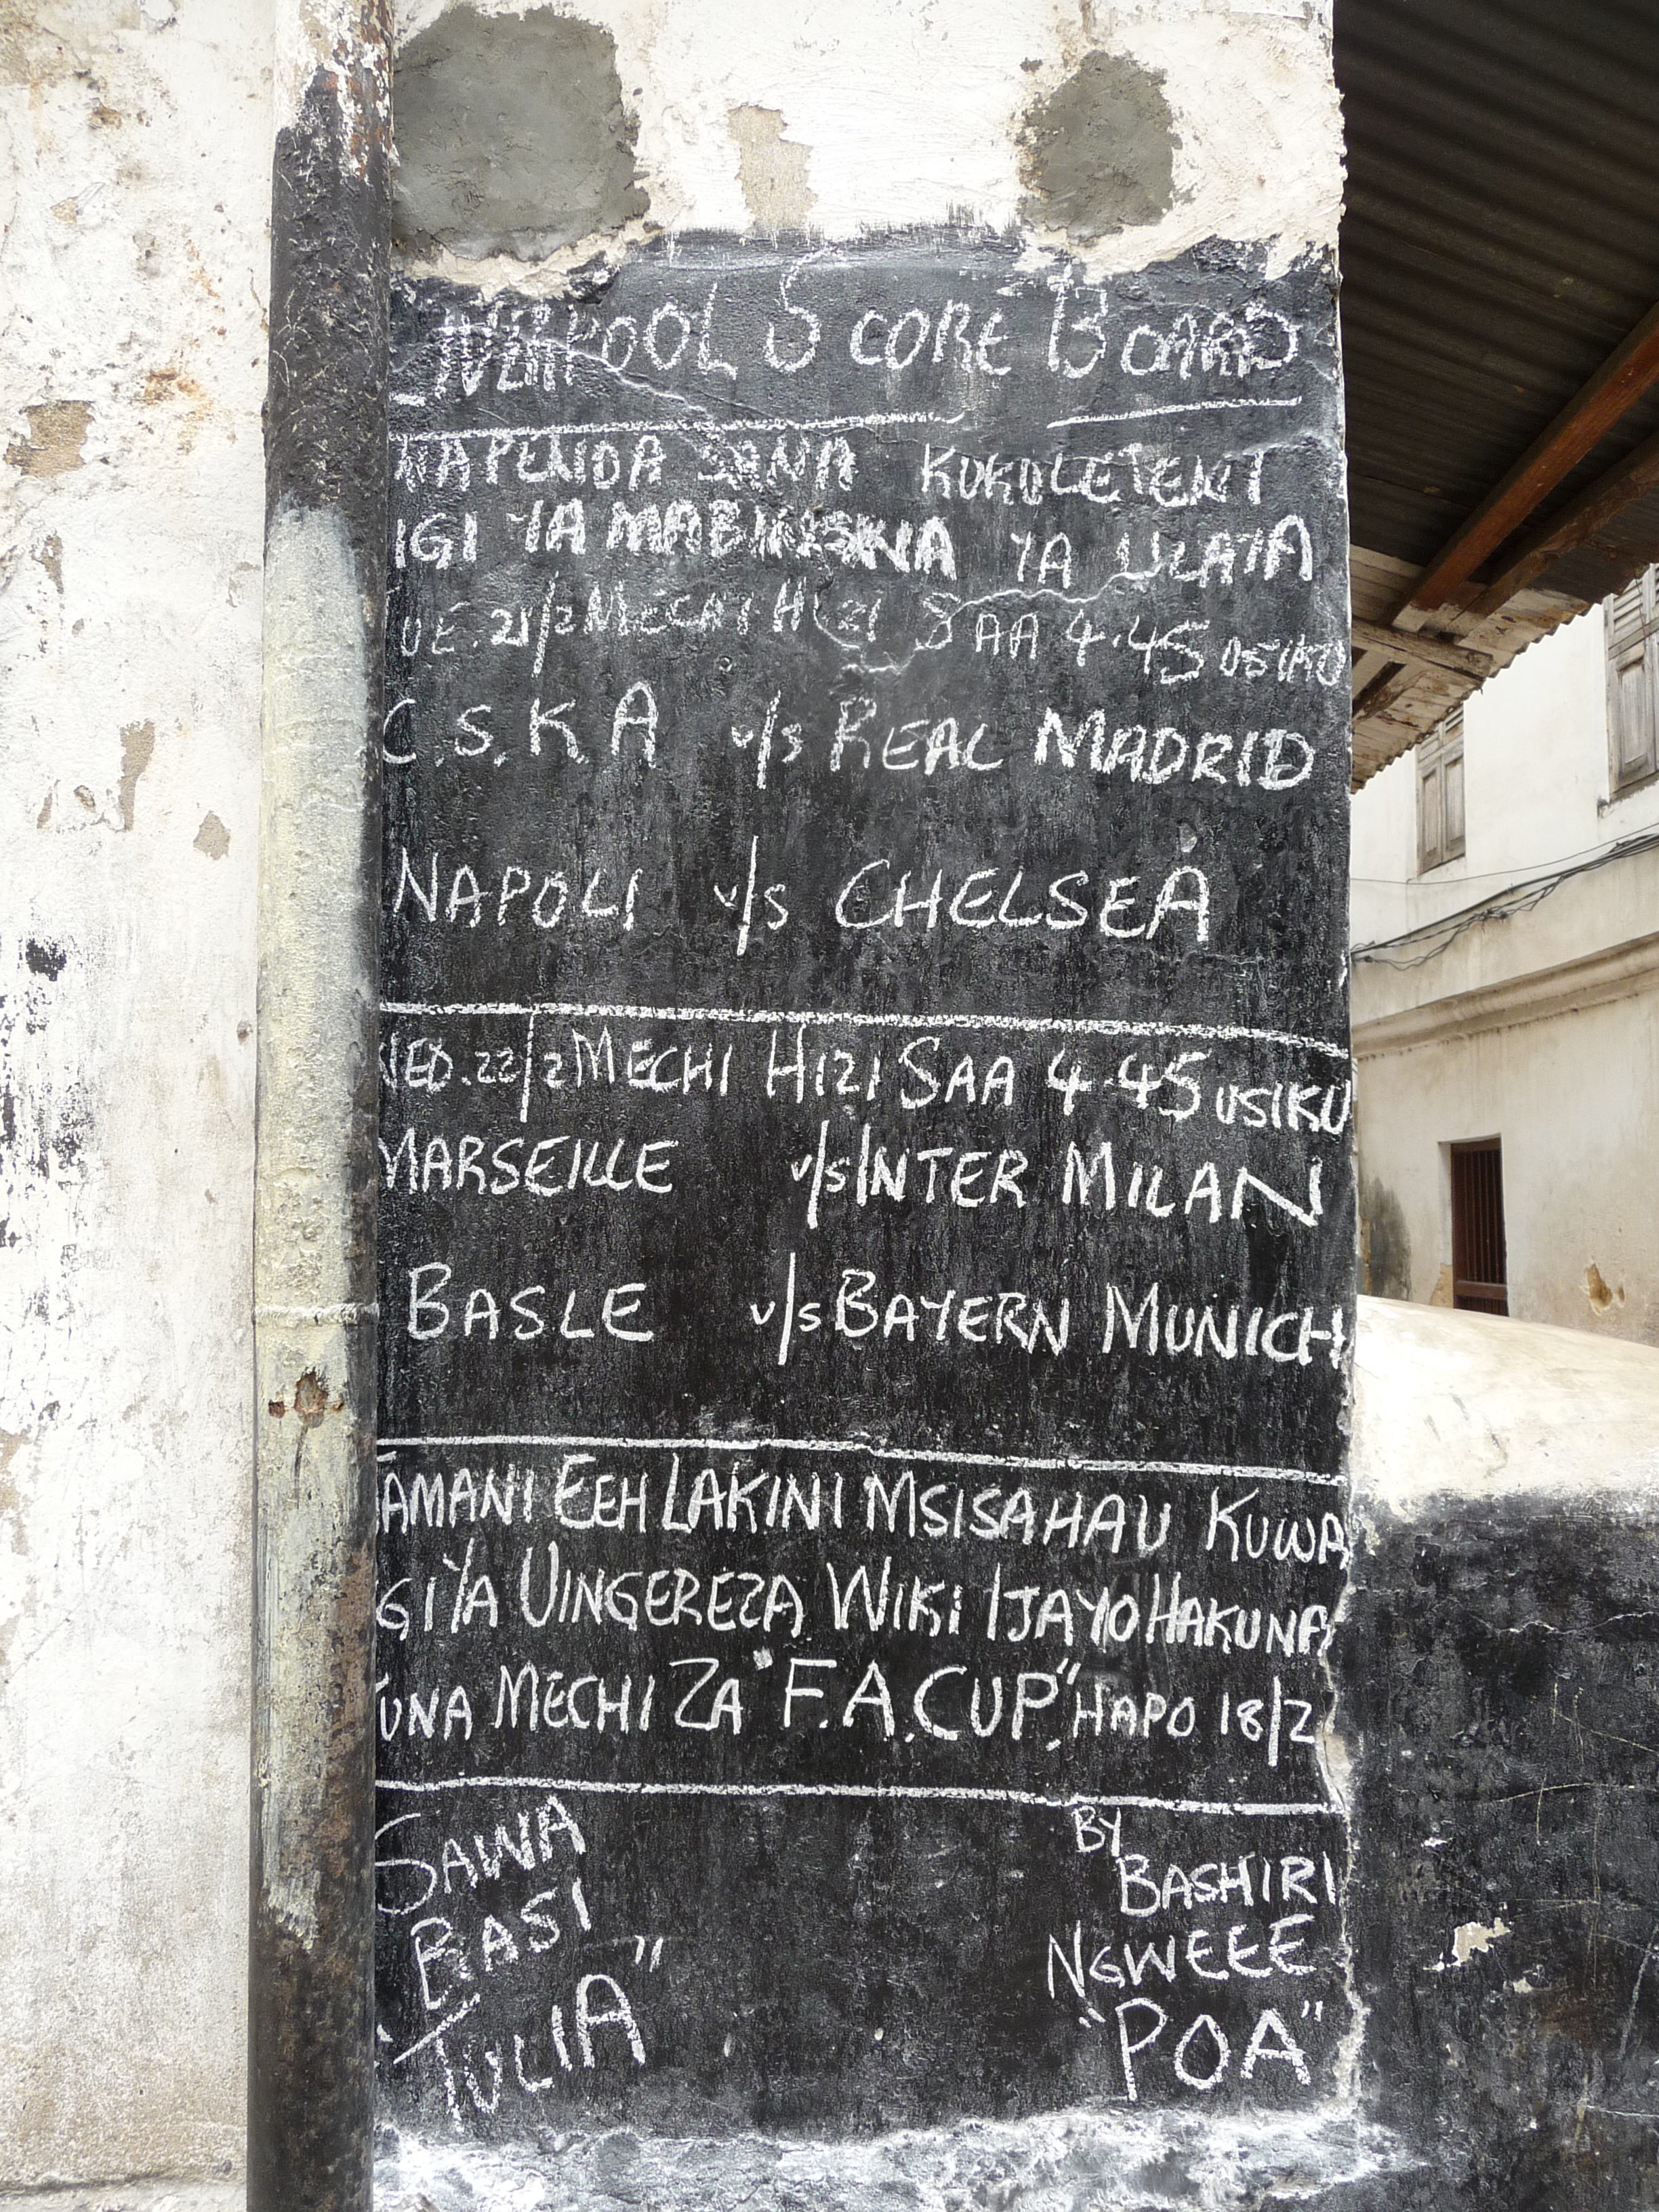 LIVERPOOL SCORE BOARD
NAPENDA SANA KUKULETENI
IGI YA MABINGWA YA ULAYA
TUE. 21/2 MECHI HIZI SAA 4.45 USIKU
C.S.K.A v/s REAL MADRID
NAPOLI v/s CHELSEA
WED. 22/2 MECHI HIZI SAA 4.45 USIKU
MARSEILLE v/s INTER MILAN
BASLE v/s BAYERN MUNICH
JAMANI EEH LAKINI MSISAHAU KUWA
GI YA UINGEREZA WIKI IJAYO HAKUNA
KUNA MECHI ZA "F.A.CUP," HAPO 18/2
SAWA
BASI
"TULIA"
BY
BASHIRI
NGWEEE
"POA"